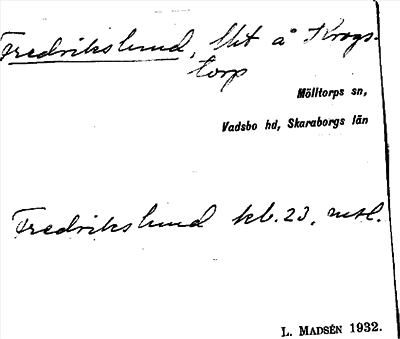 Fredrikslund, lht å Krogs-
torp
Mölltorps sn,
Vadsbo hd, Skaraborgs län
Fredrikslund kb. 23. mtl.
L. MADSÉN 1932.